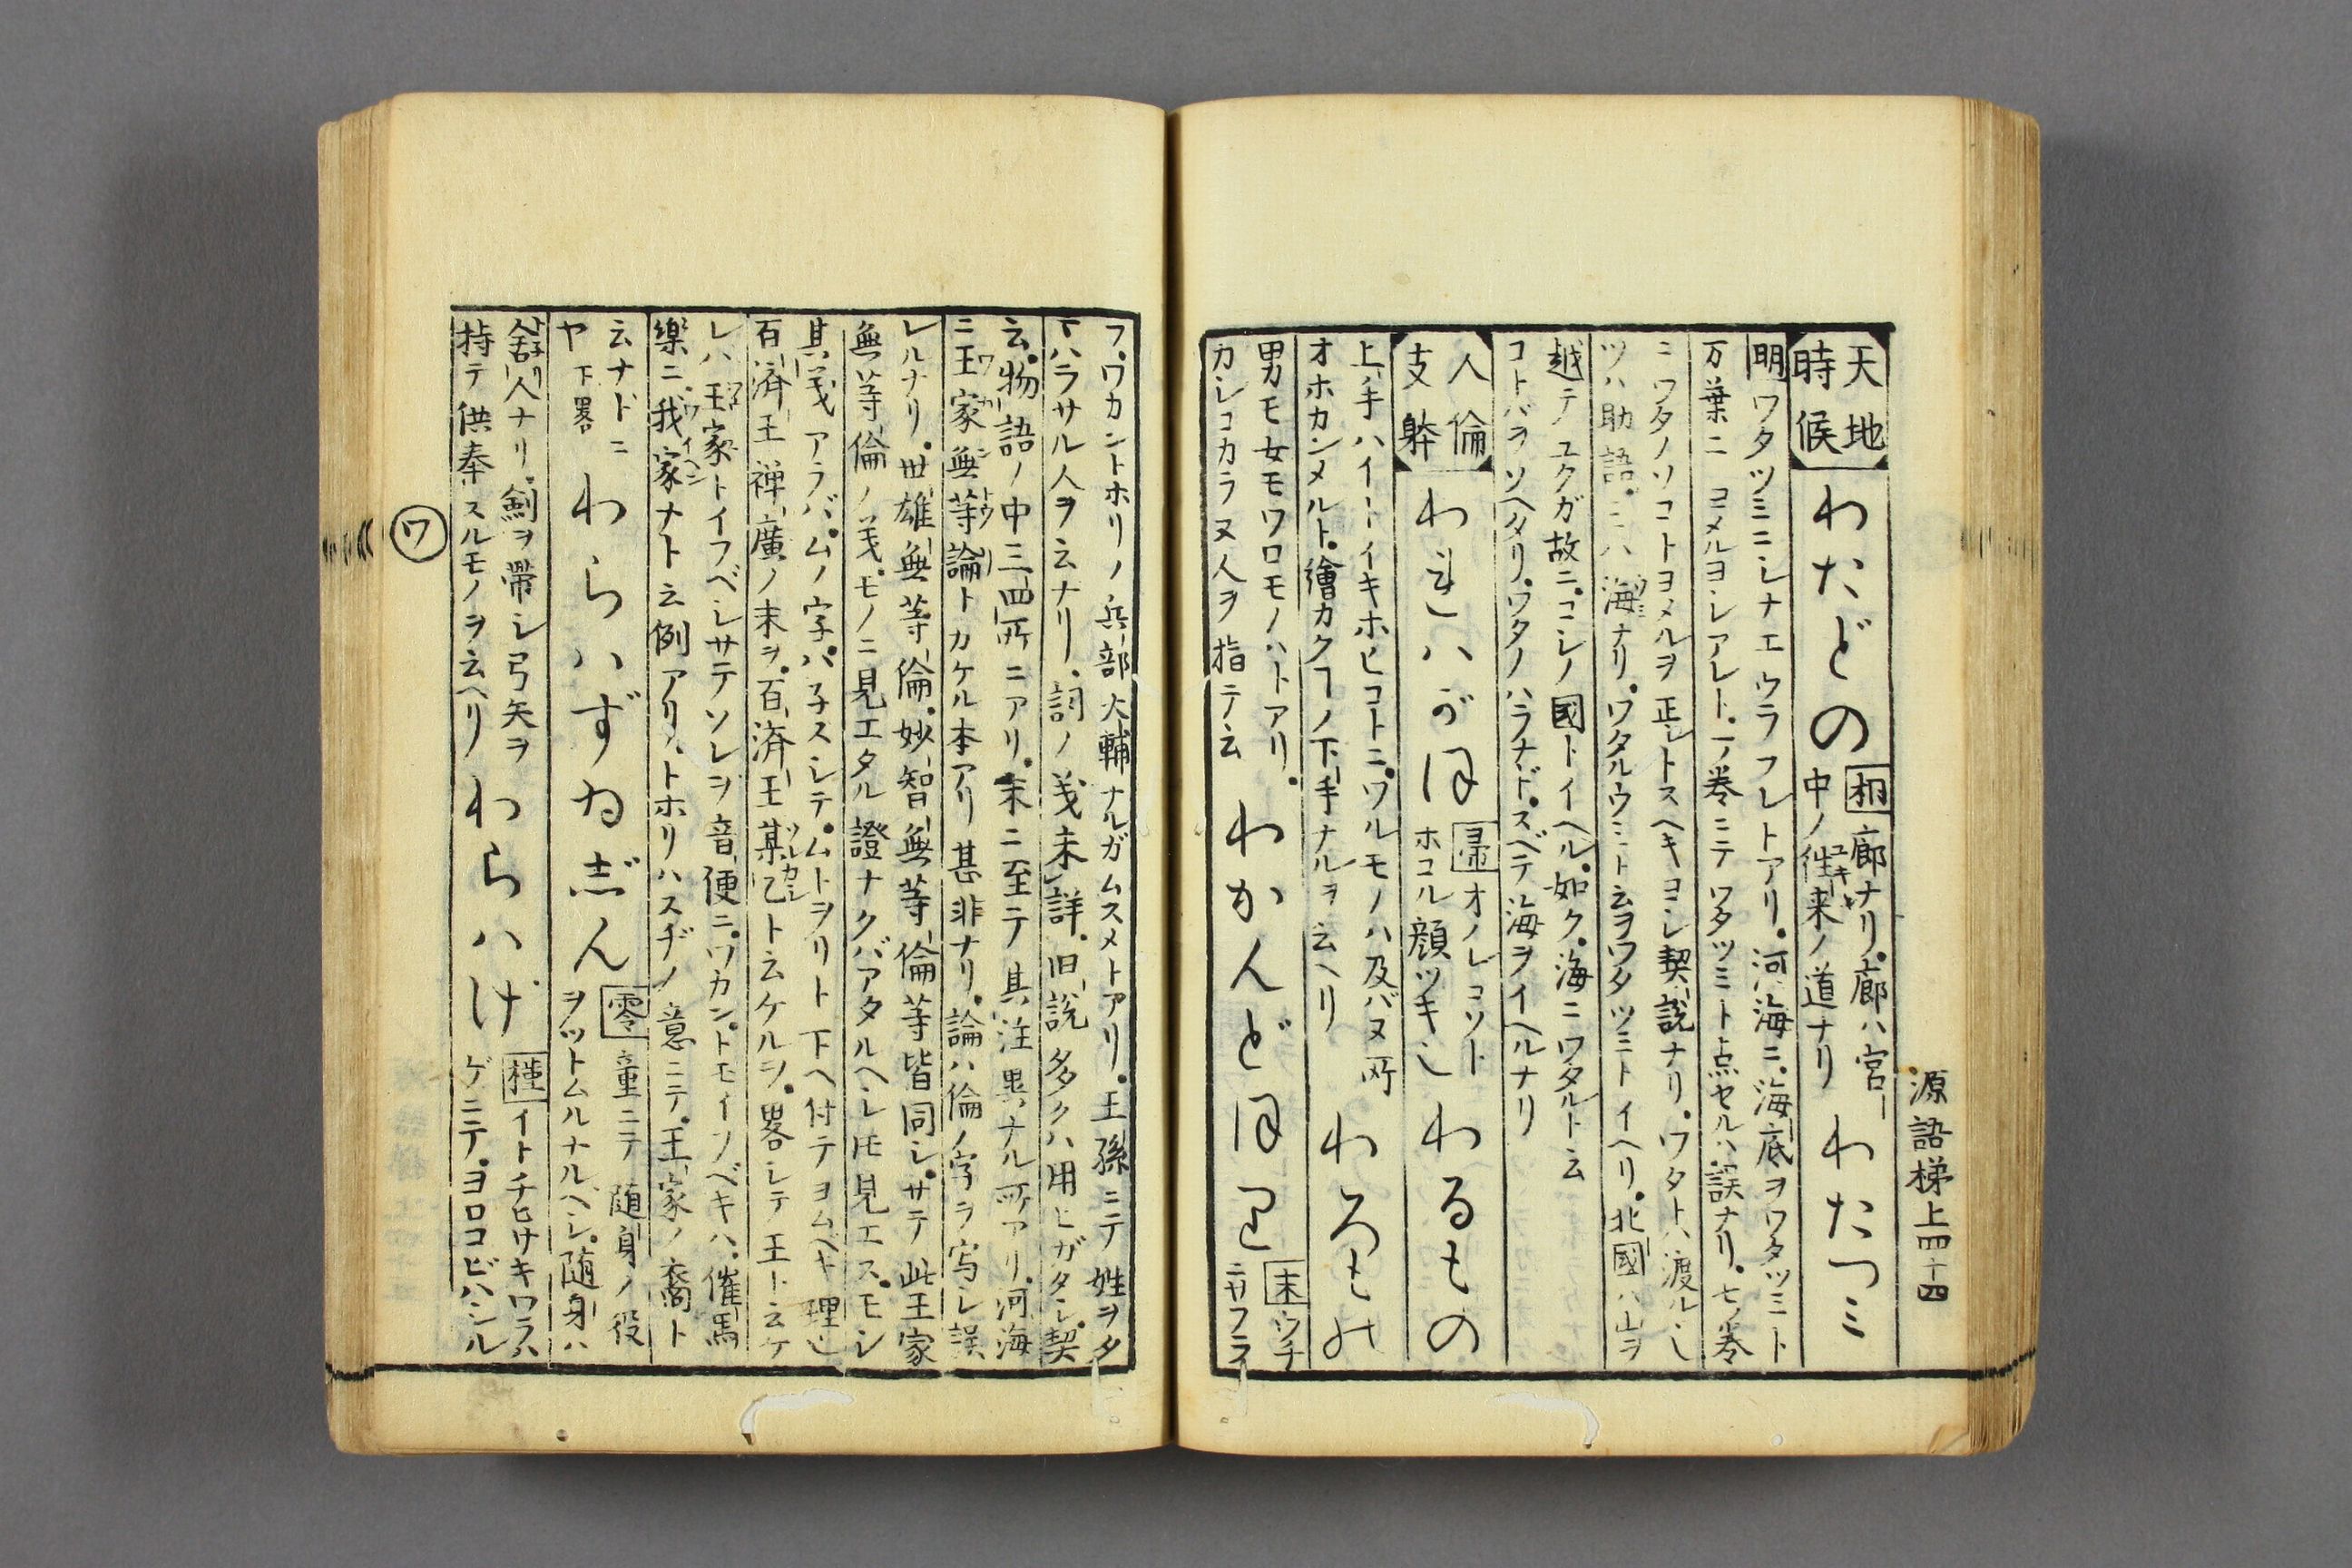 源語梯上四十四
天地
時候
わたどの
桐 廊ナリ。廊ハ宮
中ノ往来ノ道ナリ
わたつミ
明 ワタツミニシナエウラフレトアリ。河海ニ。海底ヲワタツミト
万葉ニ コメルヨシアレト。一ノ巻ニテワタツミト点セルハ。誤ナリ。七ノ巻
ニワタノソコトヨメルヲ正シトスヘキヨシ契説ナリ。ワタトハ渡ル也
ツハ助語。ミハ海ナリ。ワタルウミト云ヲワタツミトイヘリ。北國ハ山ヲ
越テユクガ故ニ。コシノ國トイヘル。如ク。海ニワタルト云
コトバヲソヘタリ。ワタノハラナド。スベテ海ヲイヘルナリ
人倫
支躰
われハがほ
帚 オノレコソト
ホコル顔ツキ也
わるもの
上ノ手ハイトイキホヒコトニ。ワルモノハ及バヌ所
オホカンメルト。繪カクヿノ下手ナルヲ云ヘリ
わろもの
男モ女モワロモノハトアリ。
カシコカラヌ人ヲ指テ云
わかんどほり
末 ウチ
ニサフラ
フ。ワカントホリノ兵部大輔ナルガムスメトアリ。王孫ニテ姓ヲタ
マハラサル人ヲ云ナリ。詞ノ義未詳。旧説多クハ用ヒガタシ。契
云。物語ノ中三四所ニアリ。末ニ至テ其注異ナル所アリ。河海
ニ王家無等論トカケル本アリ甚非ナリ。論ハ倫ノ字ヲ写シ誤
レルナリ。世雄無等倫。妙智無等倫等皆同シ。サテ此王家
無等倫ノ義。モノニ見エタル證ナクバアタルヘシ𪜈見エス。モシ
其義アラバ。ムノ字バ子スシテ。ムトヲリト下ヘ付テヨムベキ理也
百済王禅廣ノ末ヲ。百済王某乙ト云ケルヲ。畧シテ王ト云ケ
レハ王家トイフベシサテソレヲ音便ニ。ワカントモイフベキハ。催馬
樂ニ我家ナト云例アリ。トホリハスヂノ意ニテ。王家ノ裔ト
云ナドニ
ヤ 下畧
わらハずゐじん
零 童ニテ随身ノ役
ヲツトムルナルベシ。随身ハ
舎人ナリ。劍ヲ帶シ弓矢ヲ
持テ供奉スルモノヲ云ヘリ
わらハげ
槿 イトチヒサキワラハ
ゲニテ。ヨロコビハシル
ワ